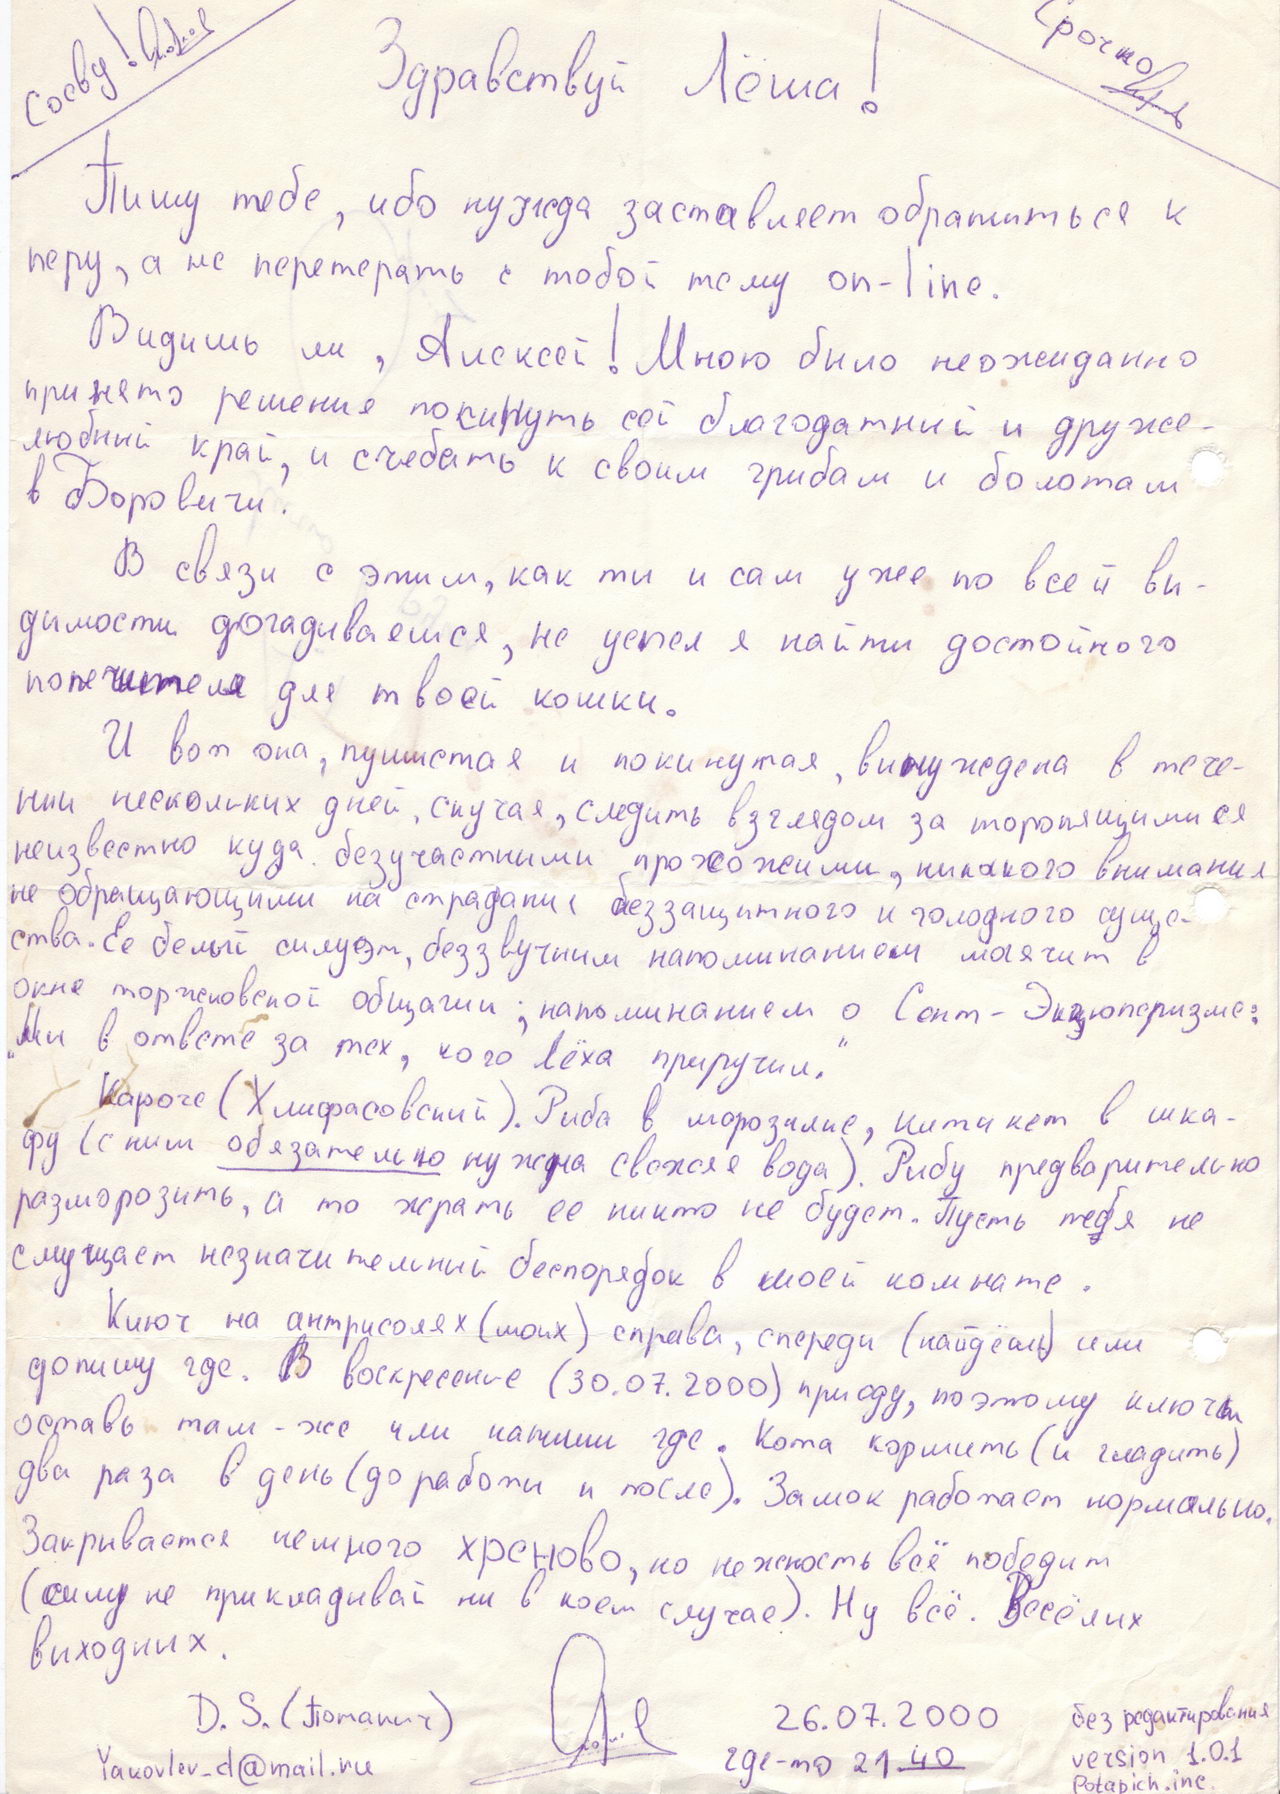 Соевд!
Срочно
Здравствуй Лёша!
Пишу тебе, ибо нужда заставляет обратиться к
перу, а не перетерать с тобой тему on-line.
Видишь ли, Алексей! Мною было неожиданно
принято решение покинуть сей благодатный и друже-
любный край, и съебать к своим грибам и болотам
в Боровичи.
В связи с этим, как ты и сам уже по всей ви-
димости догадываешся, не успел я найти достойного
попечителя для твоей кошки.
И вот она, пушистая и покинутая, вынуждена в тече-
нии нескольких дней, скучая, следить взглядом за торопящимися
неизвестно куда безучастными прохожими, никакого внимания
не обращающими на страдания беззащитного и голодного суще-
ства. Её белый силуэт, беззвучным напоминанием маячит в
окне торжковской общагии; напоминанием о Сент-Экзюперизме:
„Мы в ответе за тех, кого Лёха приручил."
Кароче (Хлифасовский). Рыба в морозилке, китикет в шка-
фу (с ним обязательно нужна свежая вода). Рыбу предварительно
разморозить, а то жрать её никто не будет. Пусть тебя не
смущает незначительный беспорядок в моей комнате.
Ключ на антрисолях (моих) справа, спереди (найдёшь) или
допишу где. В воскресение (30.07.2000) приеду, поэтому ключи
оставь там-же или напиши где. Кота кормить (и гладить)
два раза в день (до работы и после). Замок работает нормально.
Закрывается немного хреново, но нежность всё победит
(силу не прикладывай ни в коем случае). Ну всё. Весёлых
выходных.
D. S. (Потапич)
26.07.2000
без редактирования
Yakovlev_d@mail.ru
где-то 21 40
version 1.0.1
Potapich.inc.